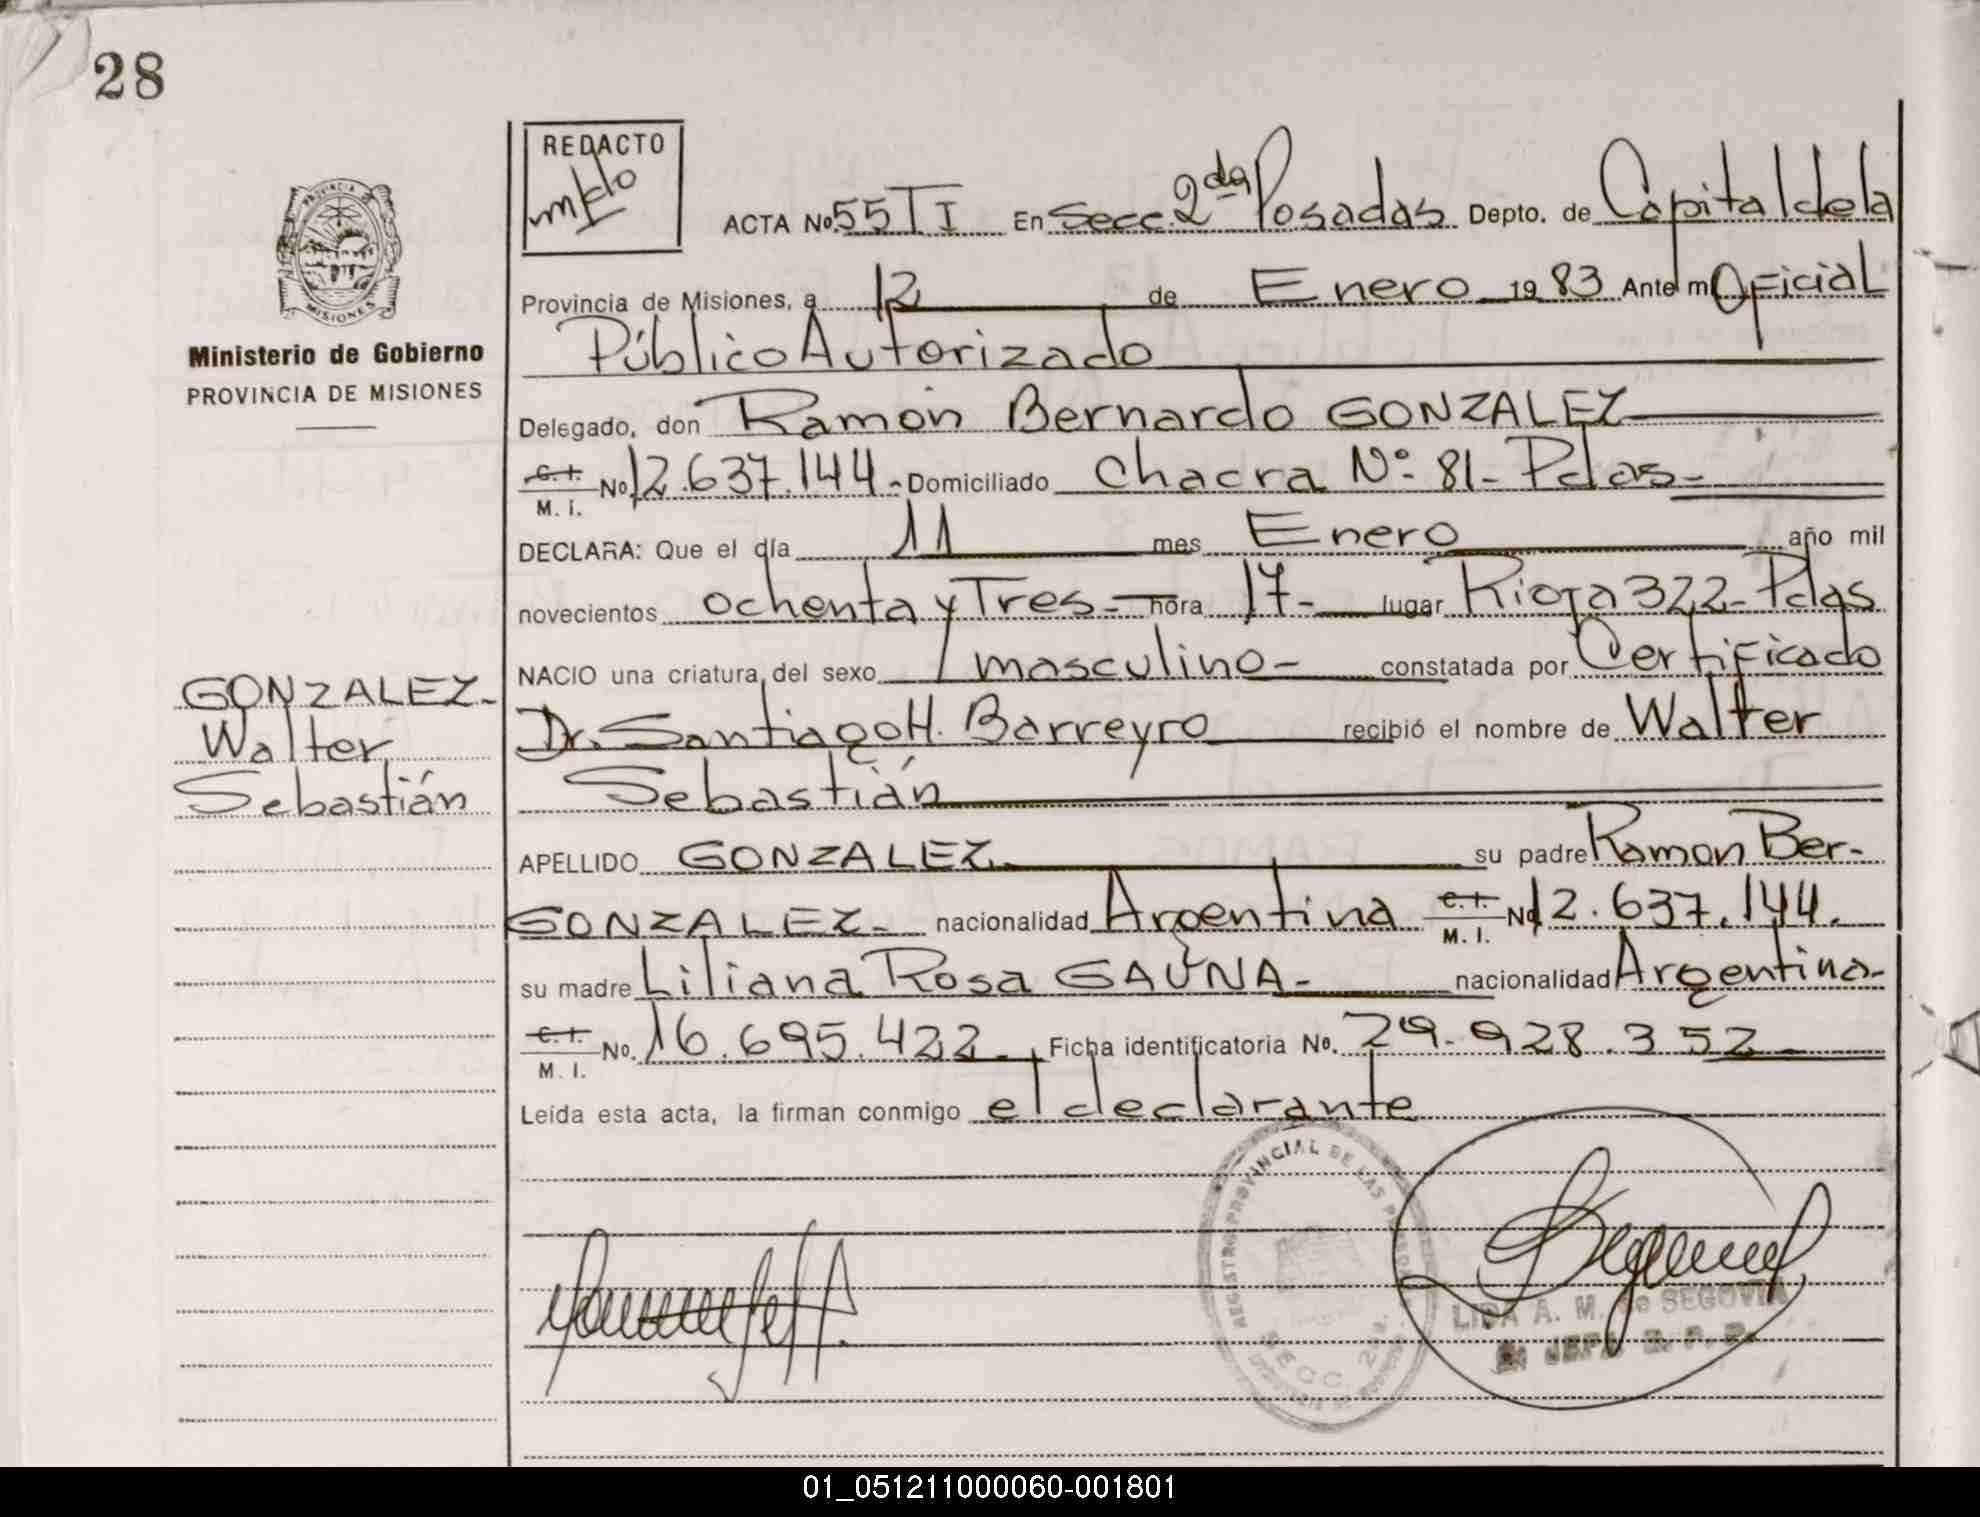 28
REDACTO
ACTA No. 55 T I En Secc. 2da Posadas Depto. de Capital de la
PROVINCIA DE
MISIONES
Provincia de Misiones, a 12 de Enero 1983 Ante mi Oficial
Público Autorizado
Ministerio de Gobierno
PROVINCIA DE MISIONES
Delegado, don Ramón Bernardo GONZALEZ
C.I. M.I. No. 12.637.144 - Domiciliado Chacra Nº 81 - Pdas -
DECLARA: Que el día 11 mes Enero año mil
novecientos ochenta y Tres - hora 17 - lugar Rioja 322 - Pdas
NACIO una criatura del sexo masculino - constatada por Certificado
Dr. Santiago H. Barreyro recibió el nombre de Walter
Sebastián
GONZALEZ -
Walter
Sebastián
APELLIDO GONZALEZ su padre Ramon Ber-
GONZALEZ - nacionalidad Argentina C.I. M.I. No. 12.637.144.
su madre Liliana Rosa GAUNA - nacionalidad Argentina -
C.I. M.I. No. 16.695.422 - Ficha identificatoria No. 29.928.352 -
Leída esta acta, la firman conmigo el declarante
REGISTRO PROVINCIAL DE LAS PERSONAS
SECC. 2da.
LIDA A. M. de SEGOVIA
JEFA R. P. P.
01_051211000060-001801